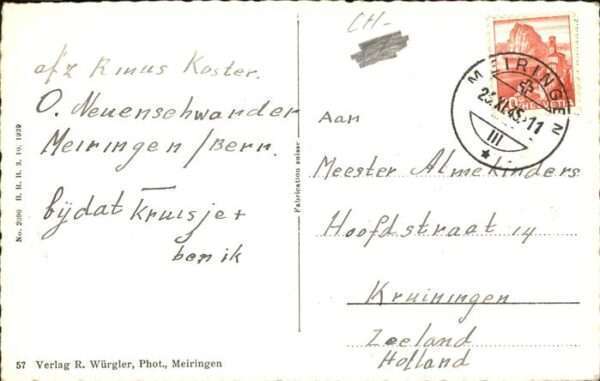 CH-
afz Rinus Koster.
O. Neuenschwander
Meiringen / Bern.
bijdat kruisje +
ben ik
No. 2090 B. R. B. 3. 10. 1939
Fabrication suisse
57 Verlag R. Würgler, Phot., Meiringen
MEIRINGEN
III
Aan
Meester Almekinders
Hoofdstraat 14
Kruiningen
Zeeland
Holland